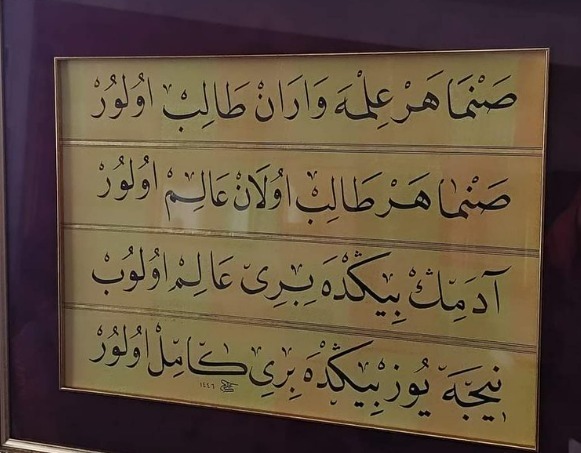 صَنْمَا هَرْ عِلْمَه وَارَانْ طَالِبْ اوُلوُرْ
صَنْمَا هَرْ طَالِبْ اوُلَانْ عَالِمْ اوُلوُرْ
آدَمِڭْ بِيڭْدَه بِرِى عَالِمْ اوُلوُبْ
نِيجَه يُوزْ بِيڭْدَه بِرِى كَامِلْ اوُلوُرْ
١٤٤٦